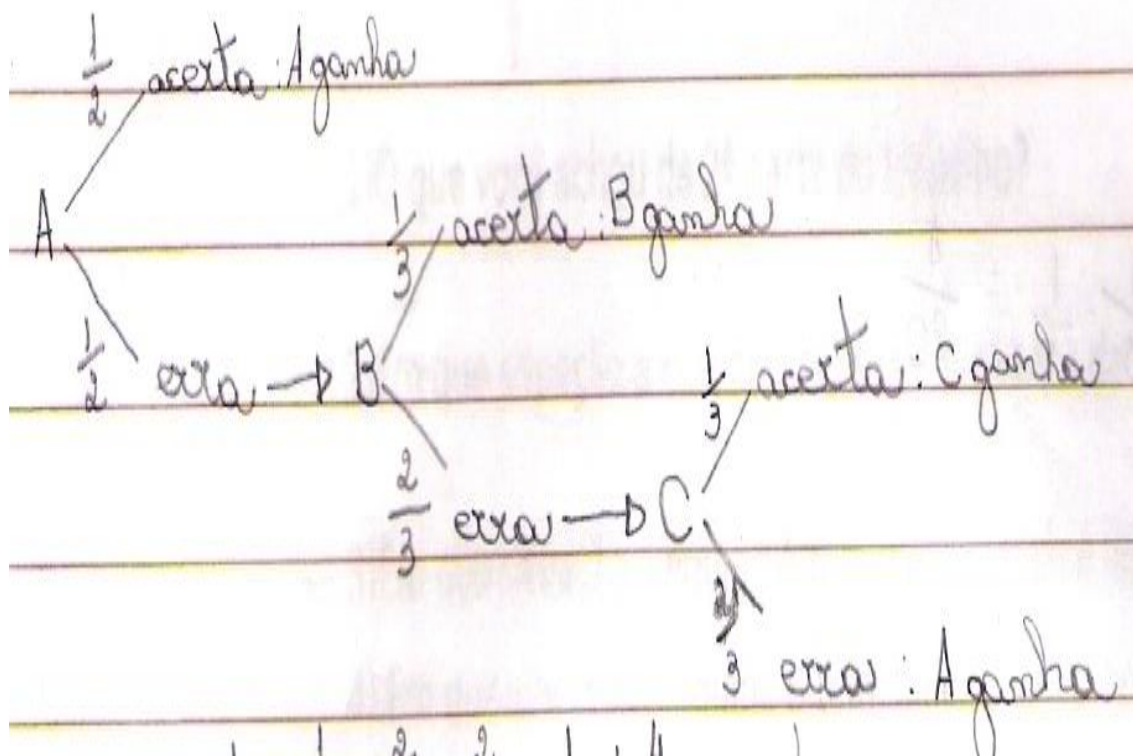 1/2 acerta: A ganha
A
1/3 acerta: B ganha
1/2 erra → B
1/3 acerta: C ganha
2/3 erra → C
2/3 erra: A ganha